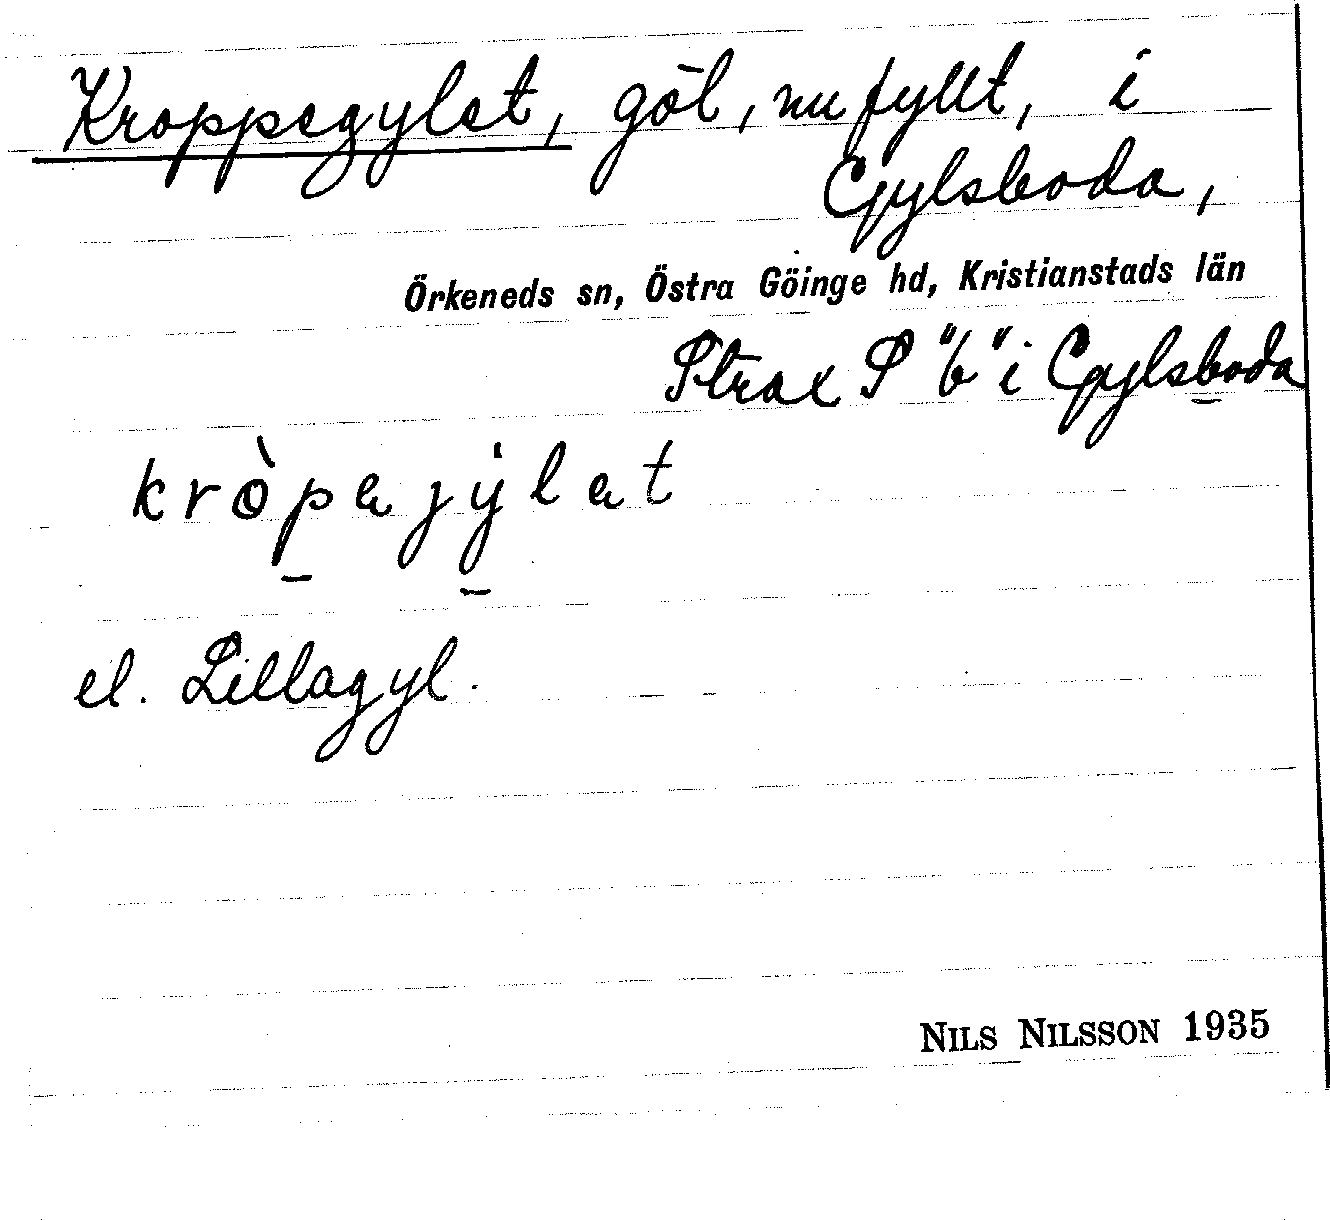 Kroppegylet, göl, nu fyllt, i
Gylsboda,
Örkeneds sn, Östra Göinge hd, Kristianstads län
Strax S "b" i Gylsboda
kròpajylat
el. Lillagyl.
NILS NILSSON 1935